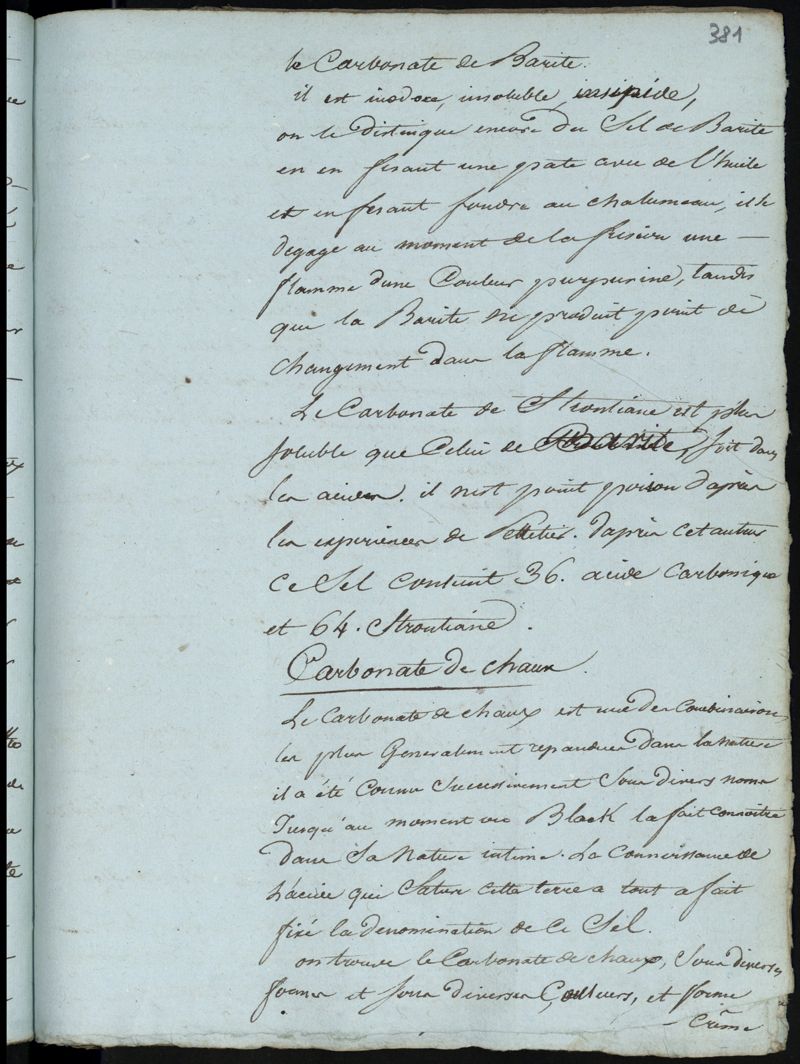 381
le Carbonate de Barite.
il est inodore, insoluble, insipide,
on le distingue encore du Sel de Barite
en en fesant une pate avec de l'huile
et en fesant fondre au chalumeau, il se
degage au moment de la fusion une —
flamme d'une Couleur purpurine, tandis
que la Barite ne produit point de
changement dans la flamme.
Le Carbonate de Strontiane est plus
soluble que Celui de Barite, soit dans
les acides. il n'est point poison d'après
les experiences de Pelletier. d'après cet auteur
Ce Sel contient 36. acide Carbonique
et 64. Strontiane.
Carbonate de chaux.
Le Carbonate de chaux est une des Combinaisons
les plus Generalement repandues dans la Nature
il a été Connu Successivement Sous divers noms
Jusqu'au moment ou Black la fait connoitre
dans Sa Nature intime. La Connoissance de
L'acide qui Sature cette terre a tout a fait
fixé la denomination de Ce Sel.
on trouve le Carbonate de chaux, Sous diverses
formes et sous diverses Couleurs, et forme
— Crême